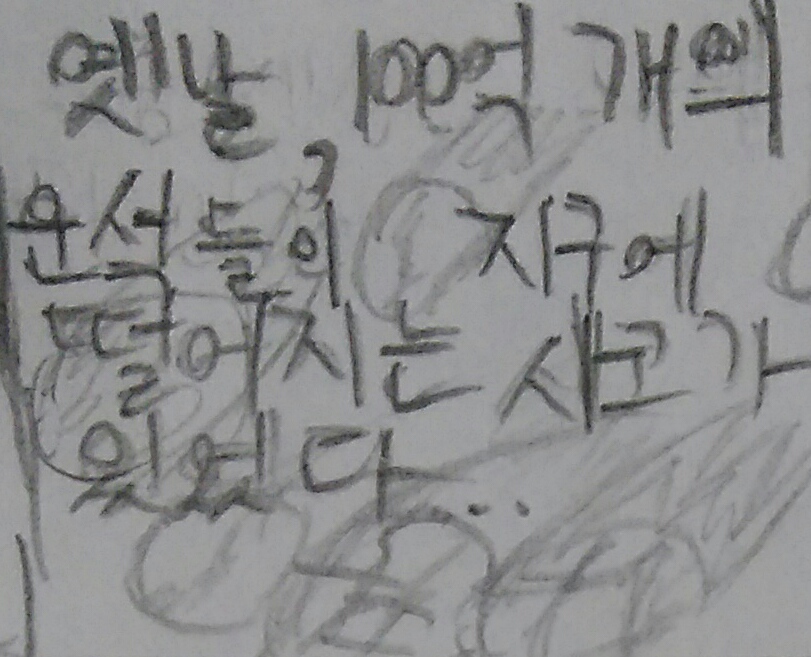 옛날 100억 개의
운석들이 지구에
떨어지는 사고가
있었다...